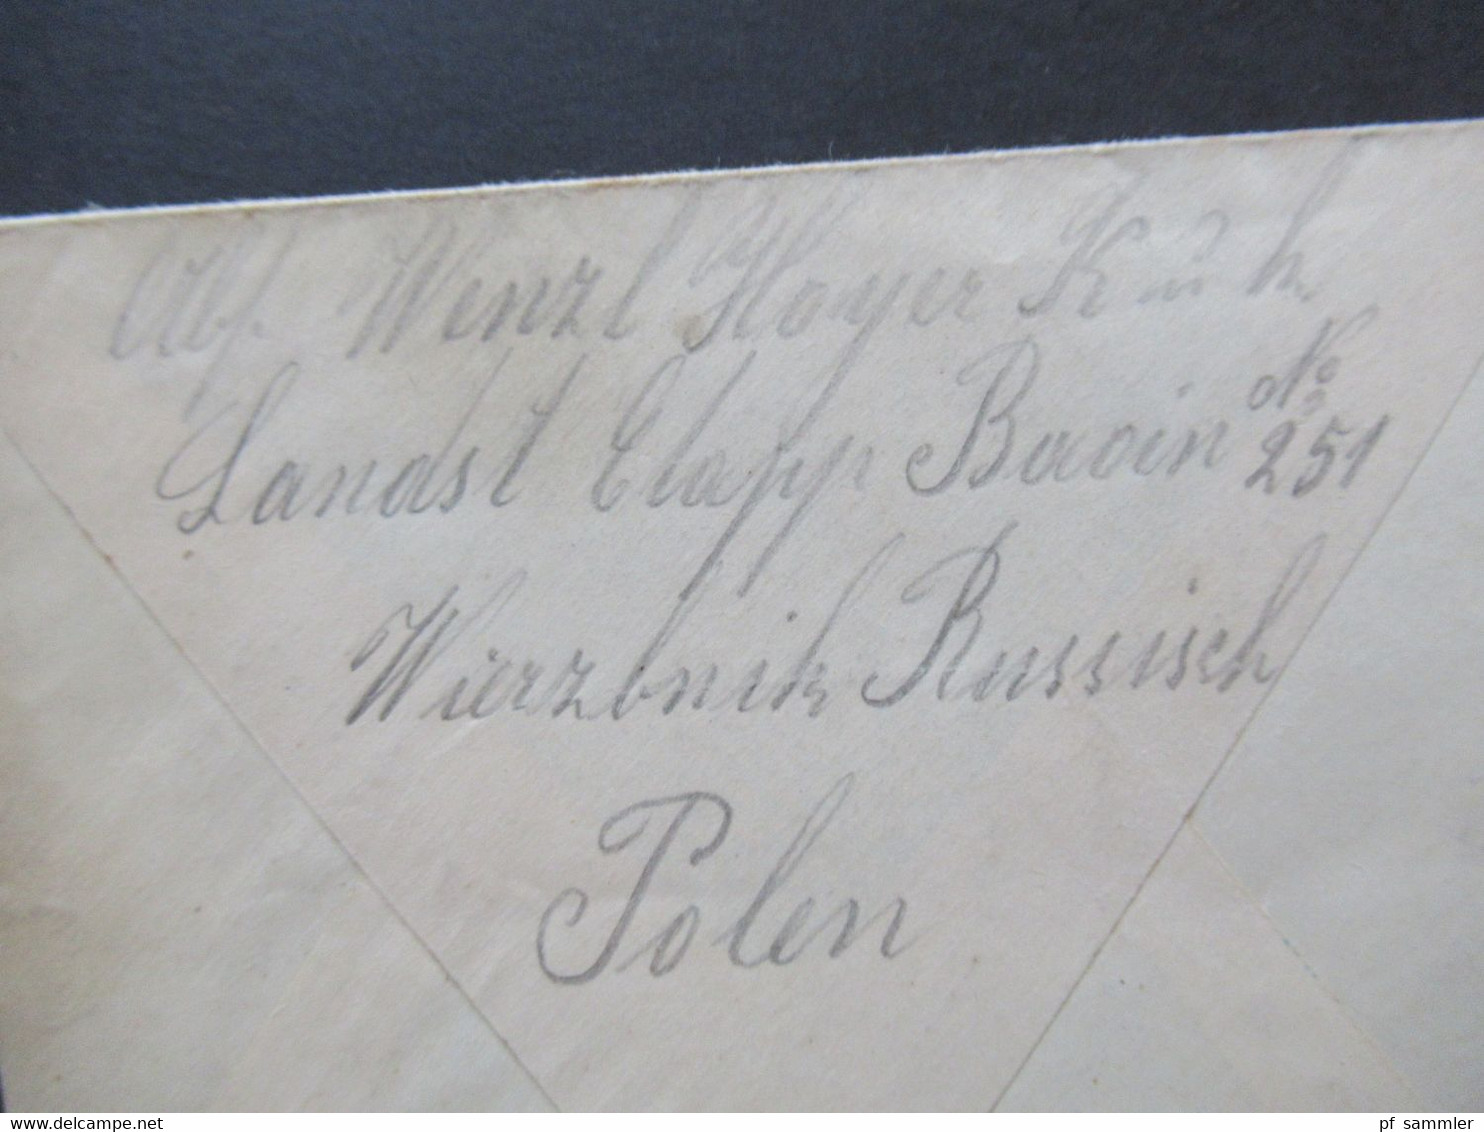 Abs. Wenzl Hoyer K u k.
Landst Etapp Baoin No 251
Wierzbnik Russisch
Polen
delcampe.net
pf_sammler